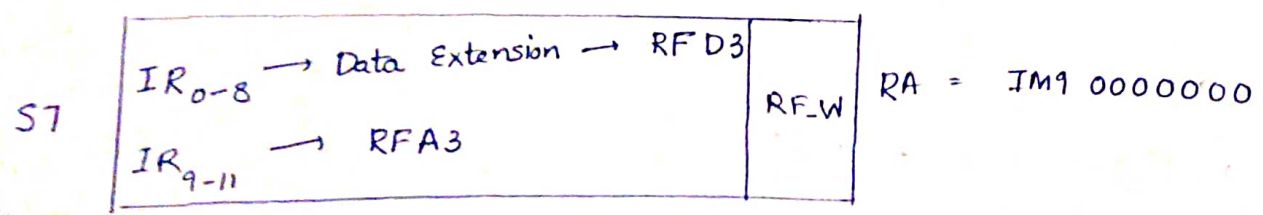 S7
IR0-8 → Data Extension → RF D3
IR9-11 → RFA3
RF_W
RA = IM9 0000000